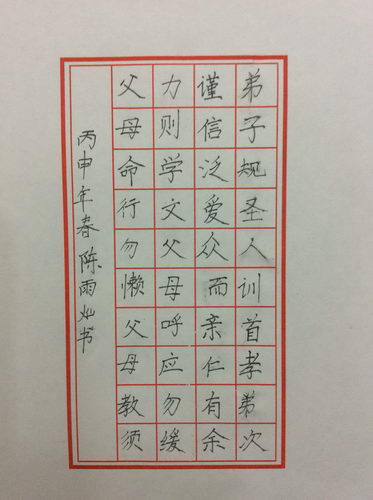 弟子规圣人训首孝弟次
谨信泛爱众而亲仁有余
力则学文父母呼应勿缓
父母命行勿懒父母教须
丙申年春陈雨灿书